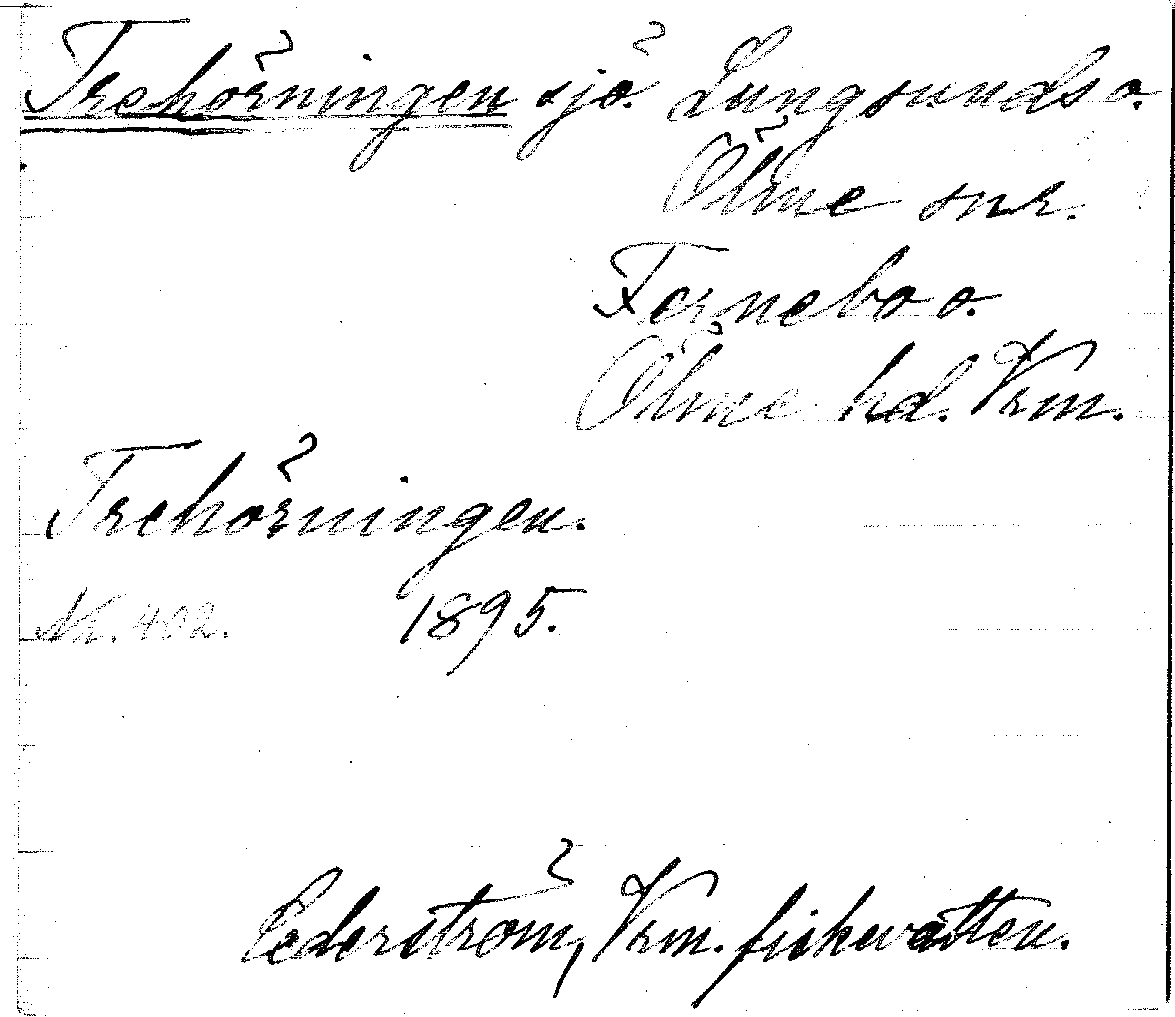 Trehörningen sjö. Lungsunds o.
Ölme snr.
Fernebo o.
Ölme hd. Vrm.
Trehörningen.
Nr. 402. 1895.
Cederström, Vrm. fiskevatten.